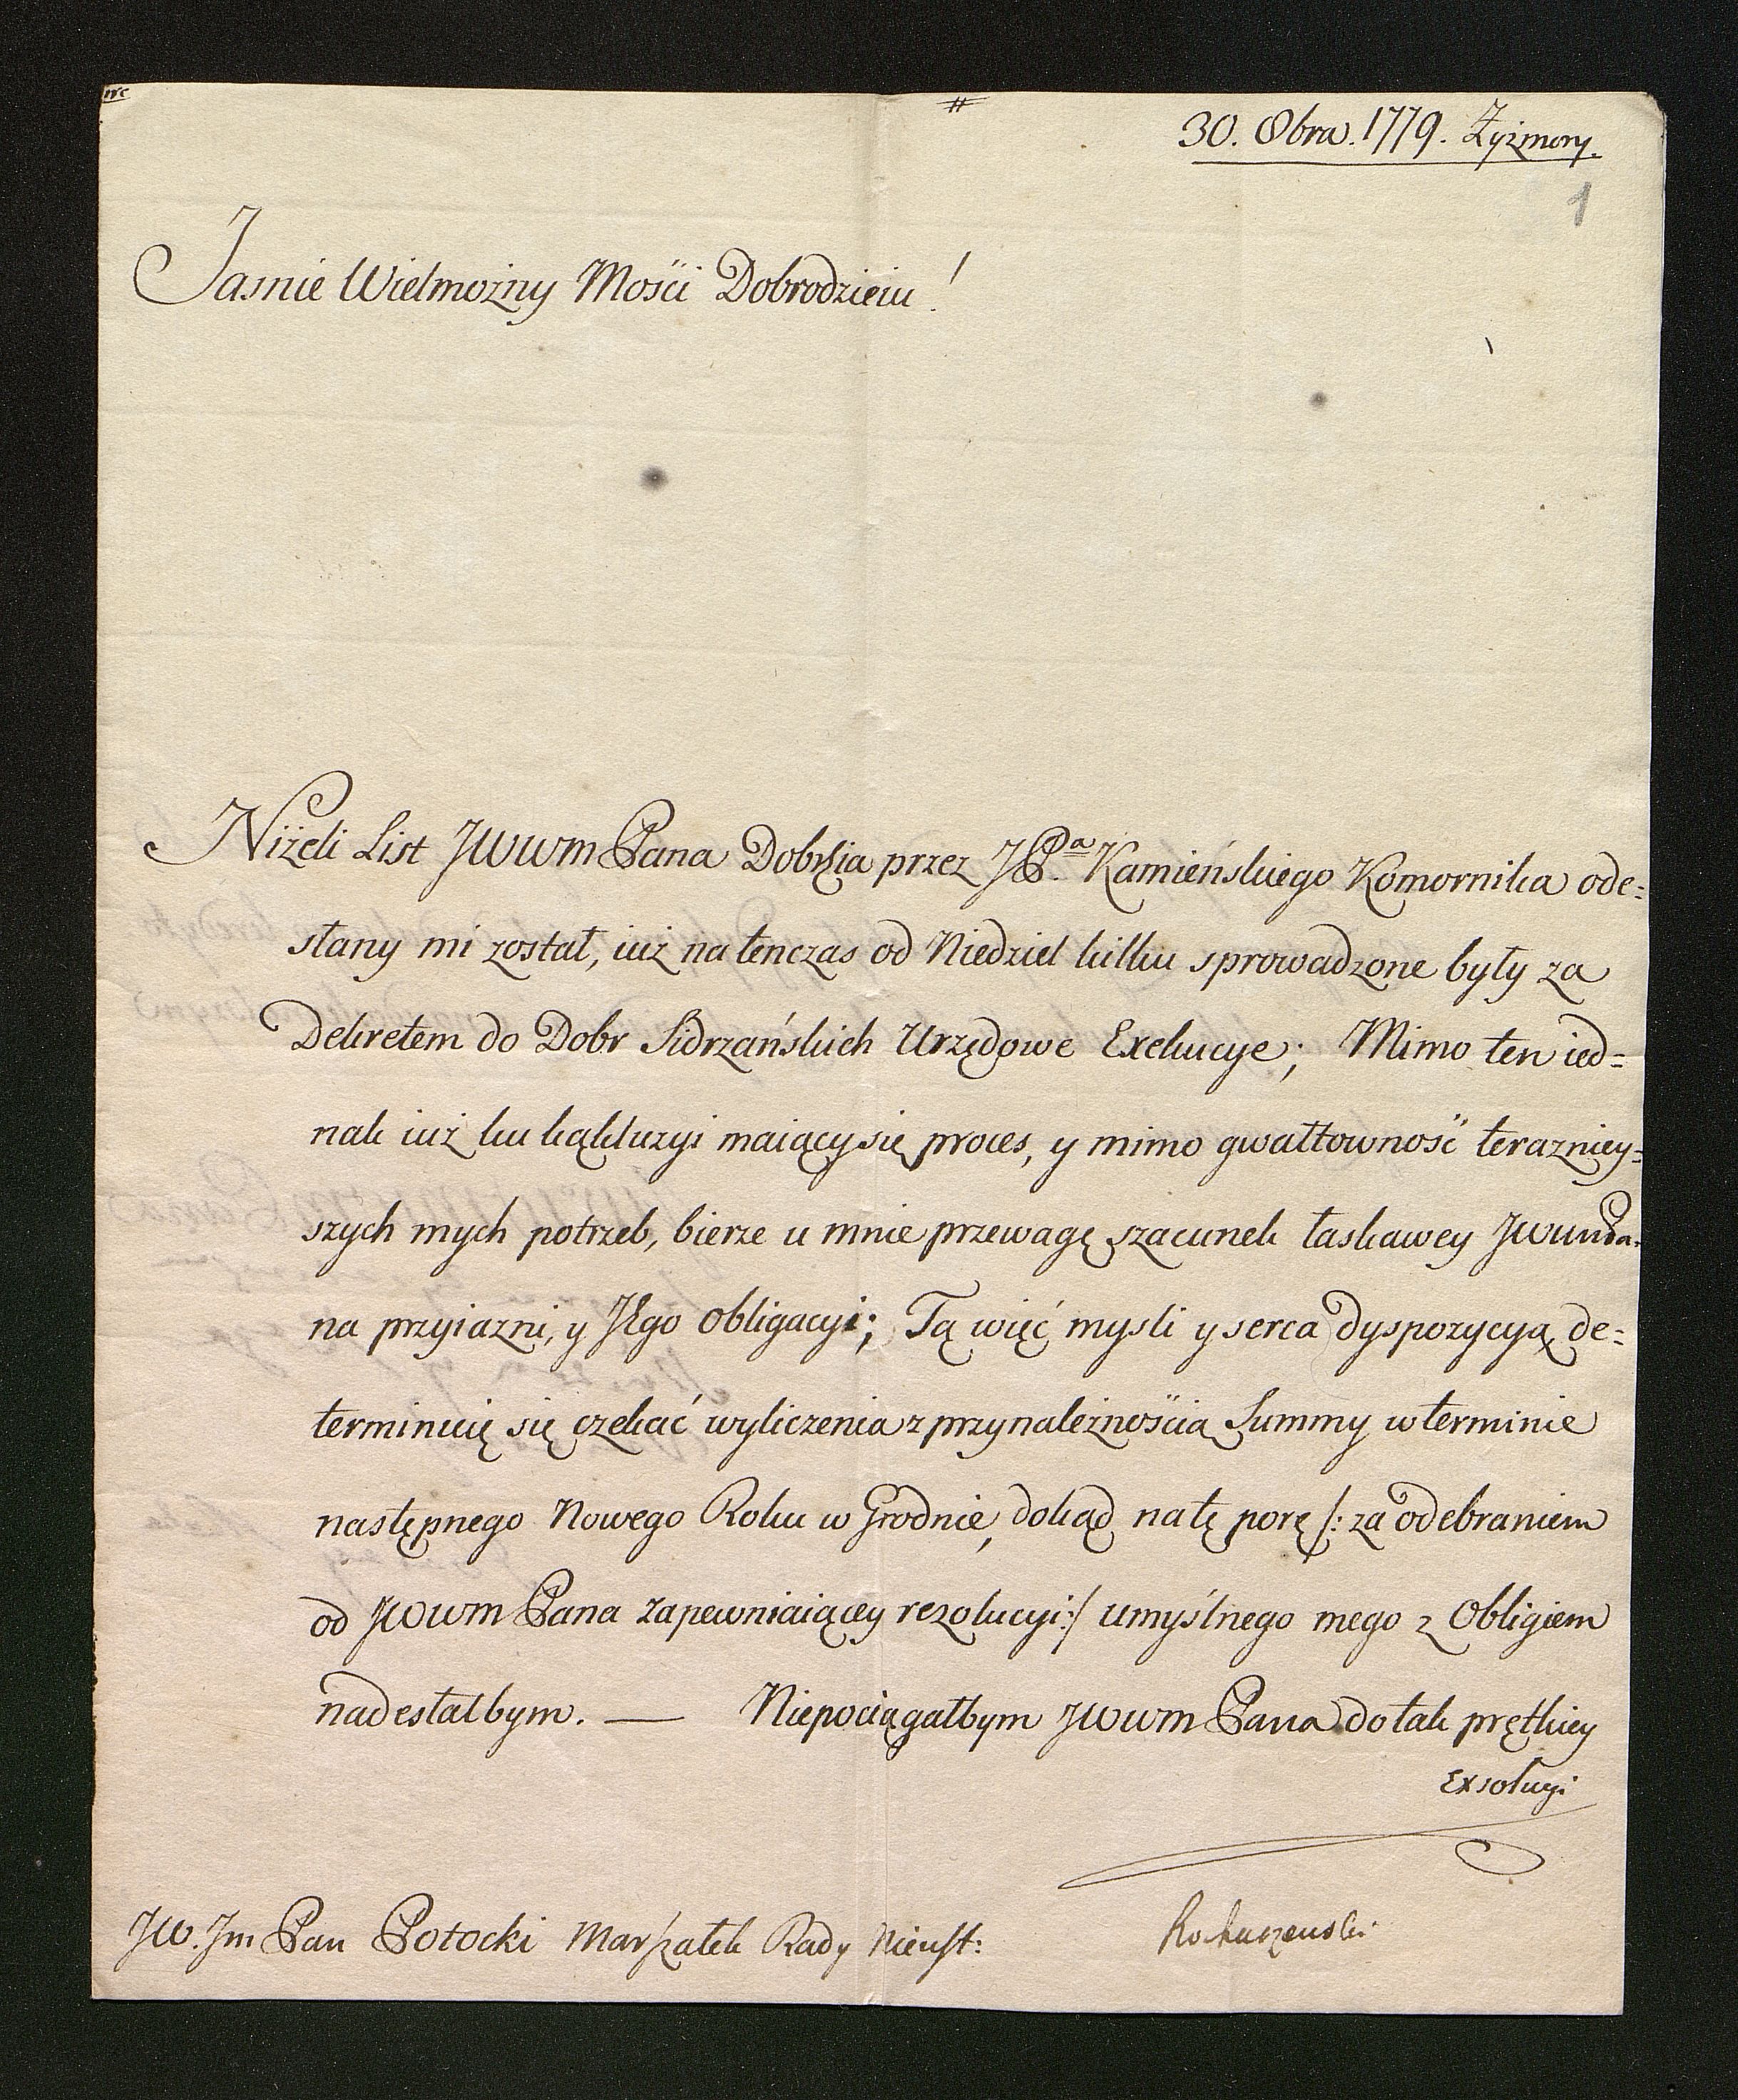 30. 8bra. 1779. Zyżmory.
1
Jasnie Wielmożny Mośći Dobrodzieiu!
Niżeli List JWWM Pana Dobrzia przez JP.ᵃ Kamieńskiego Komornika ode=
słany mi został, iuż natenczas od Niedziel kilku sprowadzone były za
Dekretem do Dobr Sidrzańskich Urzędowe Exekucye; Mimo ten ied=
nak iuż ku kąkluzyi maiący się proces, y mimo gwałtowność terazniey=
szych mych potrzeb, bierze u mnie przewagę szacunek łaskawey JWWMPa=
na przyiazni, y Jego obligacyi; Tą więć mysli y serca dyspozycyą de=
terminuię się czekać wyliczenia z przynależnośćią Summy w terminie
następnego Nowego Roku w Grodnie, dokąd na tę porę /: za odebraniem
od JWWM Pana zapewniaiącey rezolucyi :/ umyślnego mego z Obligiem
nadesłałbym. — Niepociągałbym JWWM Pana do tak prętkiey
Exsolucyi
JW. Jm Pan Potocki Marszałek Rady Nieust: